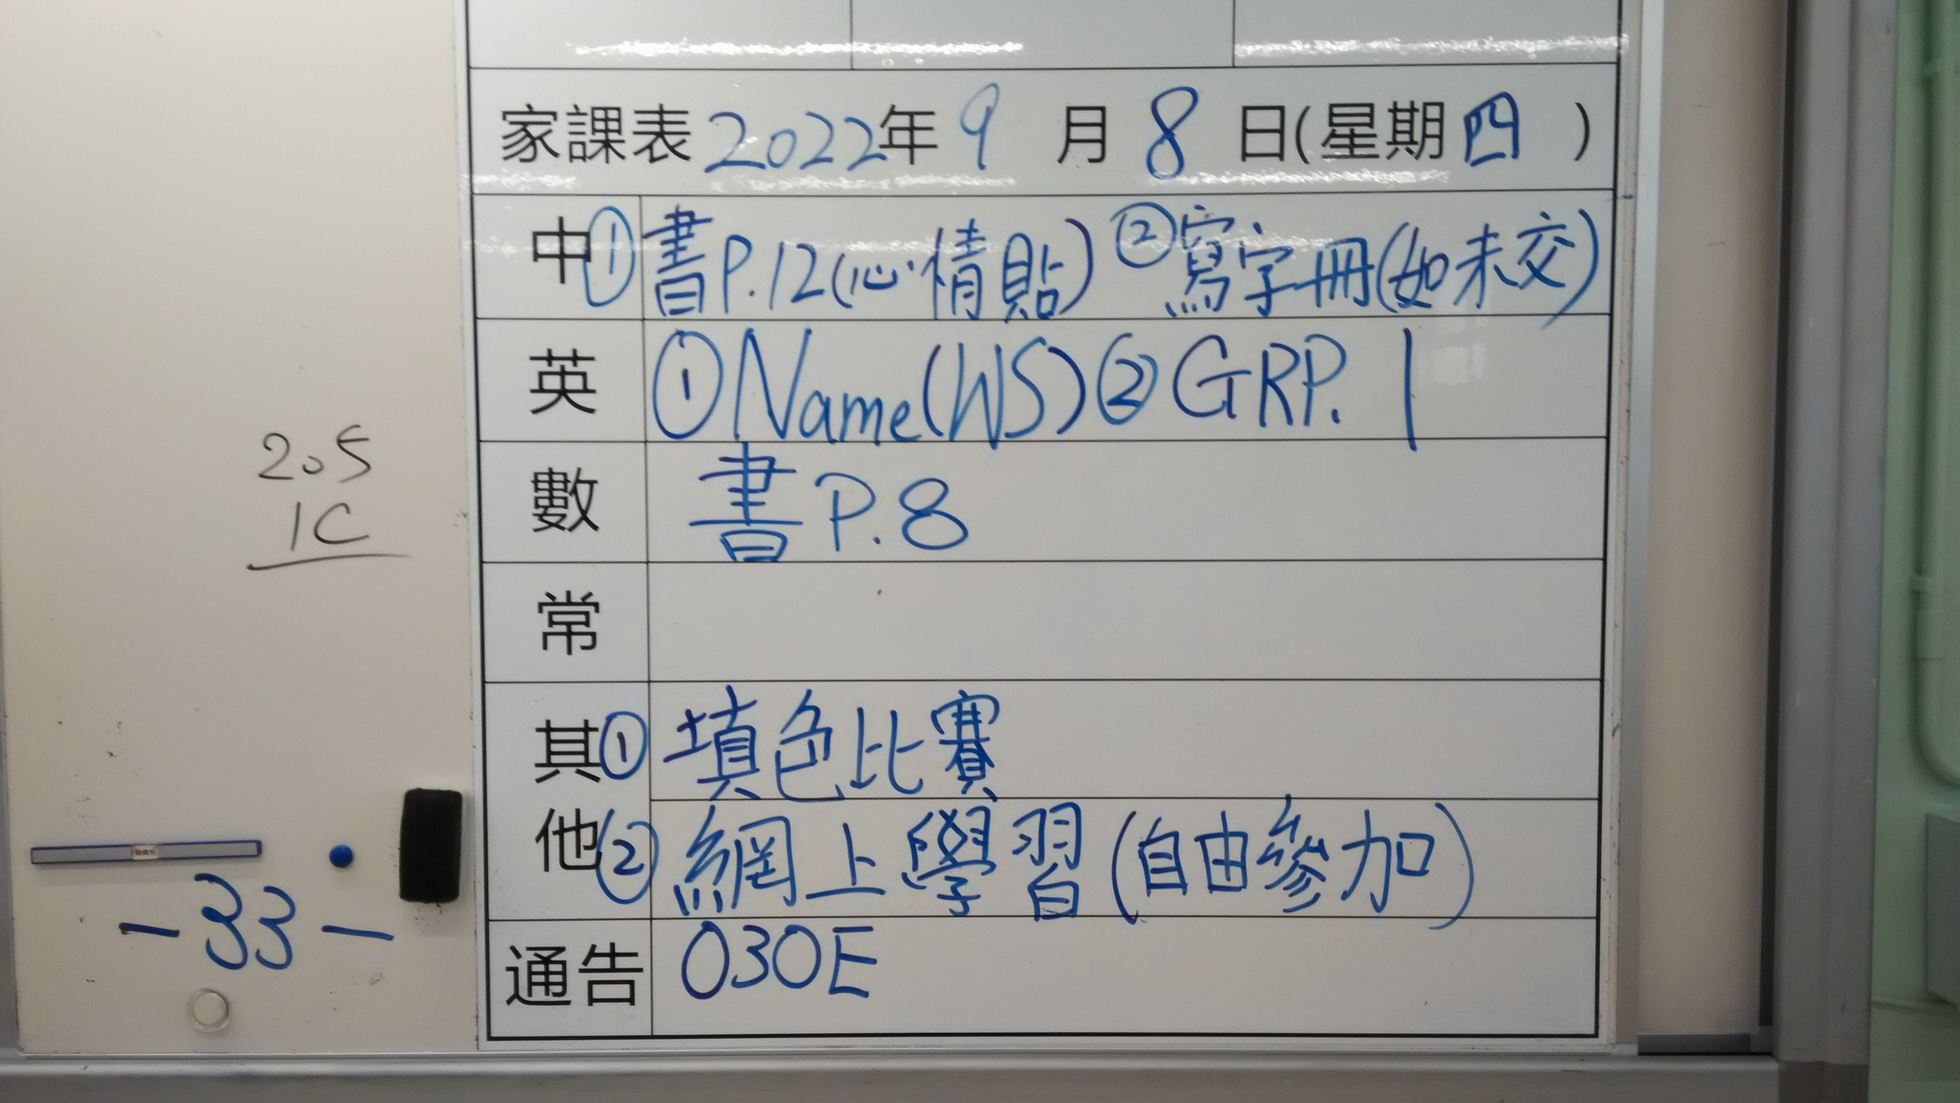 家課表 2022年 9 月 8 日(星期四 )
中 ① 書P.12(心情貼) ② 寫字冊(如未交)
英 ① Name(WS) ② GRP. 1
數 書 P.8
常
其他 ① 填色比賽
② 網上學習(自由參加)
通告 030E
205
1C
-33-